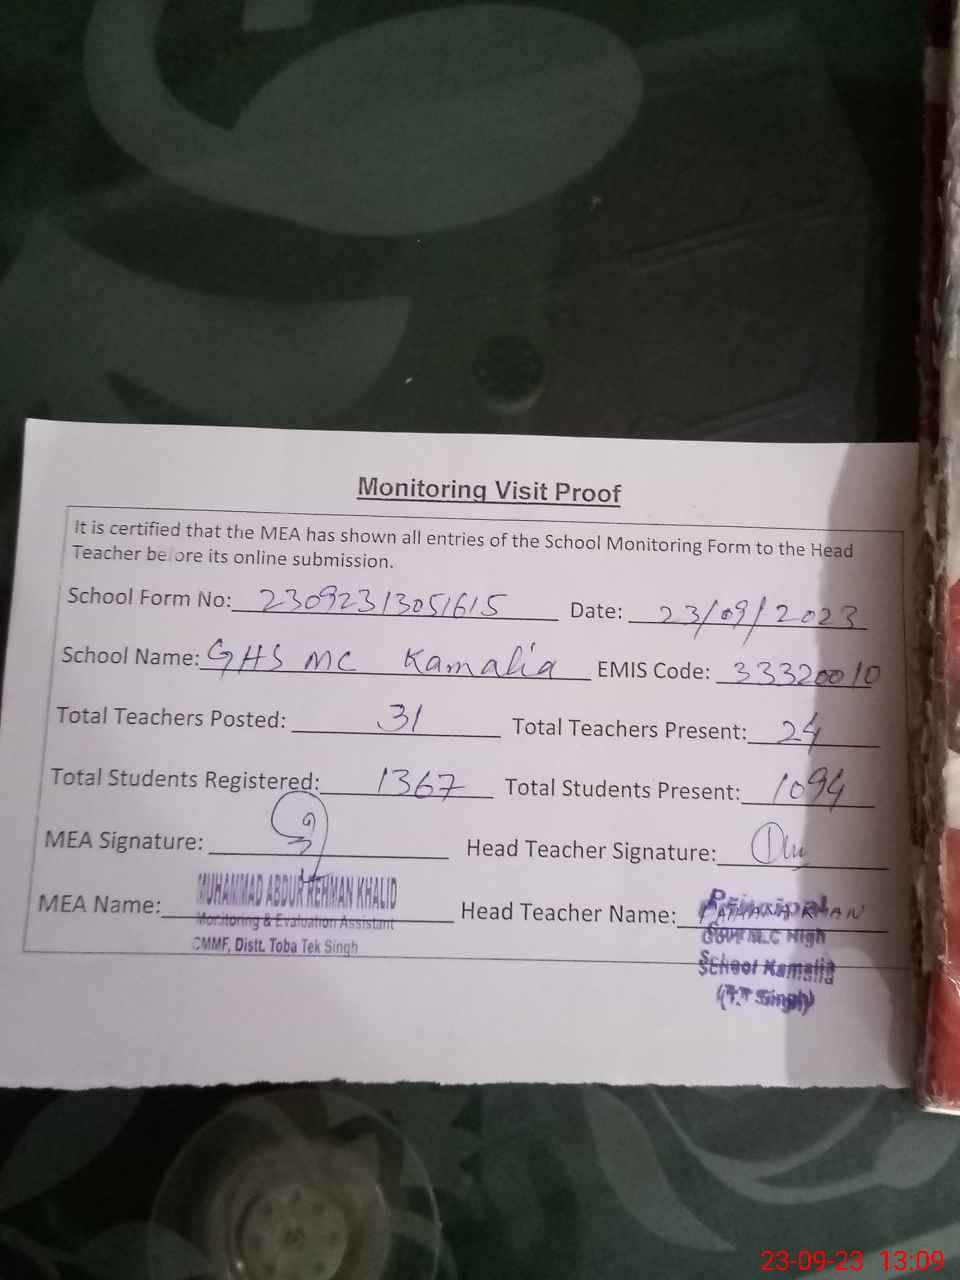 Monitoring Visit Proof
It is certified that the MEA has shown all entries of the School Monitoring Form to the Head
Teacher before its online submission.
School Form No: 23092313051615 Date: 23/09/2023
School Name: GHS MC Kamalia EMIS Code: 33320010
Total Teachers Posted: 31 Total Teachers Present: 24
Total Students Registered: 1367 Total Students Present: 1094
MEA Signature: Head Teacher Signature:
MEA Name: MUHAMMAD ABDUR REHMAN KHALID Head Teacher Name: KHAN
Monitoring & Evaluation Assistant
CMMF, Distt. Toba Tek Singh
Principal
Govt M.C High
School Kamalia
(T.T Singh)
23-09-23 13:09